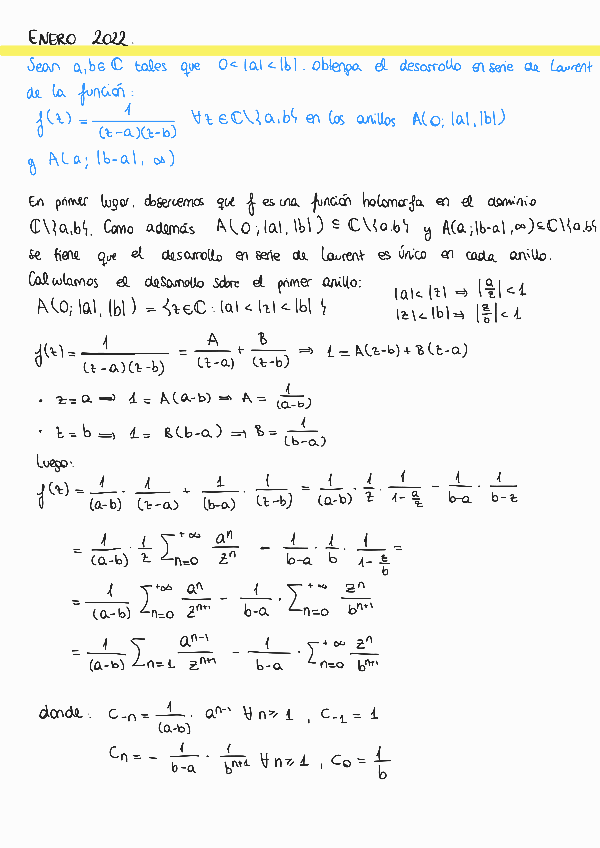 ENERO 2022.
Sean a,b∈ℂ tales que 0<|a|<|b|. Obtenga el desarrollo en serie de Laurent
de la función:
f(z) = 1/((z-a)(z-b)) ∀z∈ℂ\{a,b} en los anillos A(0;|a|,|b|)
y A(a;|b-a|,∞)
En primer lugar, observemos que f es una función holomorfa en el dominio
ℂ\{a,b}. Como además A(0;|a|,|b|) ⊆ ℂ\{a,b} y A(a;|b-a|,∞)⊆ℂ\{a,b}
se tiene que el desarrollo en serie de Laurent es único en cada anillo.
Calculamos el desarrollo sobre el primer anillo:
A(0;|a|,|b|) = {z∈ℂ: |a|<|z|<|b|}
|a|<|z| ⇒ |a/z|<1
|z|<|b| ⇒ |z/b|<1
f(z) = 1/((z-a)(z-b)) = A/(z-a) + B/(z-b) ⇒ 1=A(z-b)+B(z-a)
• z=a ⇒ 1=A(a-b) ⇒ A = 1/(a-b)
• z=b ⇒ 1=B(b-a) ⇒ B = 1/(b-a)
Luego:
f(z) = 1/(a-b) · 1/(z-a) + 1/(b-a) · 1/(z-b) = 1/(a-b) · 1/z · 1/(1-a/z) - 1/(b-a) · 1/(b-z)
= 1/(a-b) · 1/z ∑_{n=0}^{+∞} a^n/z^n - 1/(b-a) · 1/b · 1/(1-z/b) =
= 1/(a-b) ∑_{n=0}^{+∞} a^n/z^{n+1} - 1/(b-a) · ∑_{n=0}^{+∞} z^n/b^{n+1}
= 1/(a-b) ∑_{n=1} a^{n-1}/z^{n+1} - 1/(b-a) · ∑_{n=0}^{+∞} z^n/b^{n+1}
donde: C_{-n} = 1/(a-b) · a^{n-1} ∀n≥1, C_{-1} = 1
C_n = - 1/(b-a) · 1/b^{n+1} ∀n≥1, C_0 = 1/b